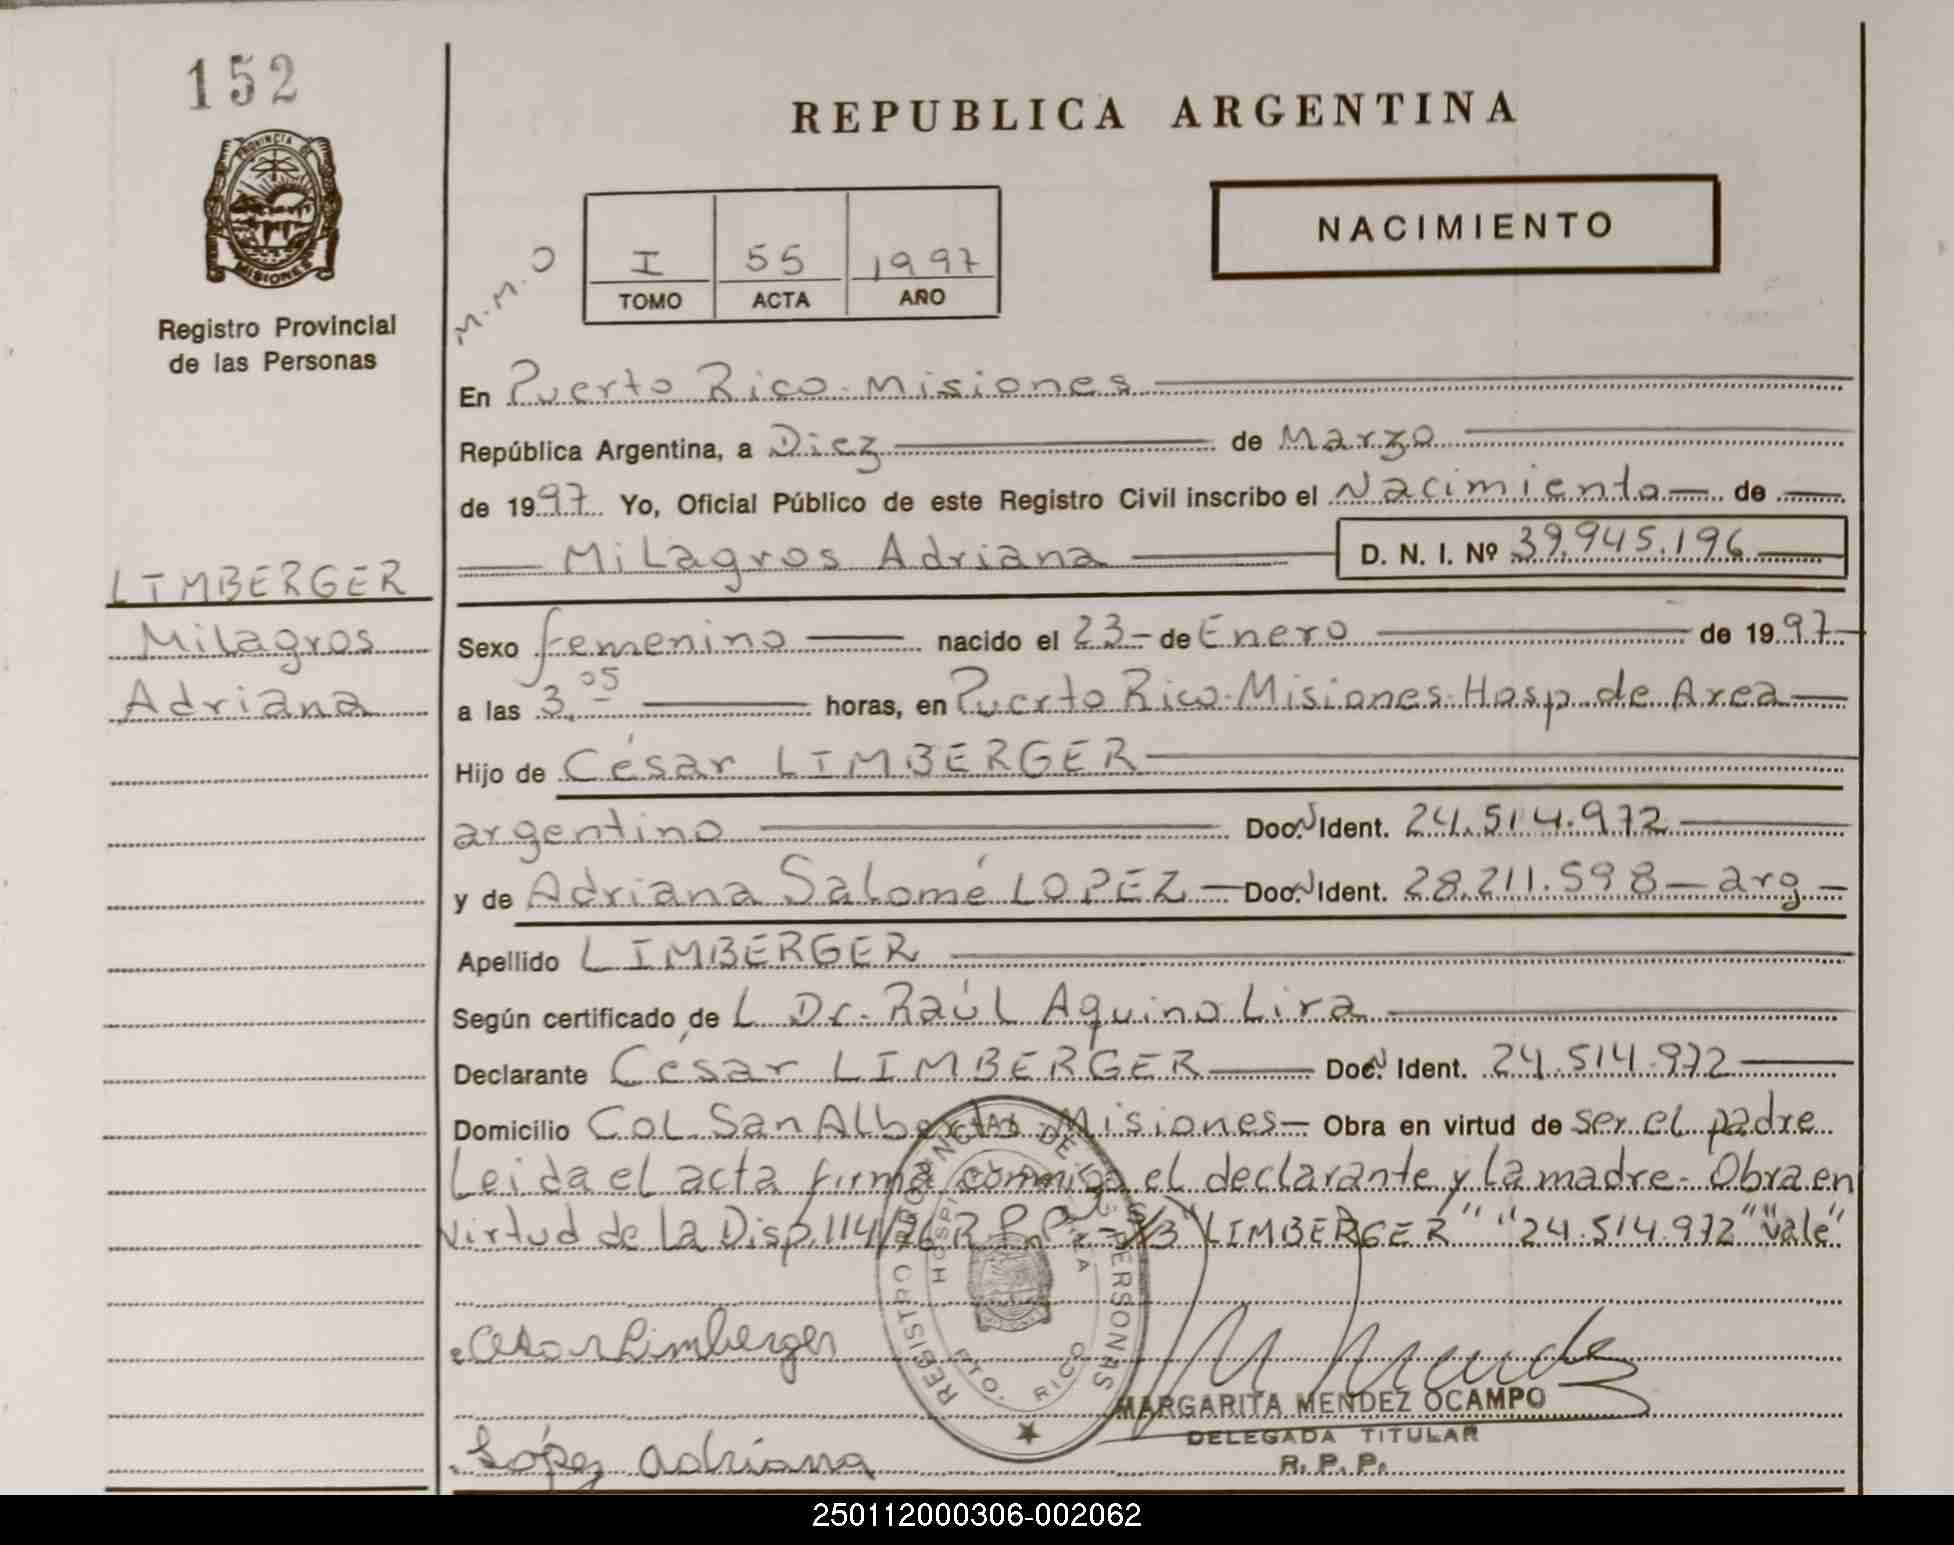 152
PROVINCIA DE
MISIONES
Registro Provincial
de las Personas
LIMBERGER
Milagros
Adriana
REPUBLICA ARGENTINA
NACIMIENTO
M.M.O
I 55 1997
TOMO ACTA AÑO
En Puerto Rico - Misiones
República Argentina, a Diez de Marzo
de 1997 Yo, Oficial Público de este Registro Civil inscribo el Nacimiento de
Milagros Adriana D. N. I. Nº 39.945.196
Sexo femenino nacido el 23 de Enero de 1997
a las 3.05 horas, en Puerto Rico - Misiones - Hosp. de Area
Hijo de César LIMBERGER
argentino Doc. N Ident. 24.514.972
y de Adriana Salomé LOPEZ - Doc. N Ident. 28.211.598 - arg -
Apellido LIMBERGER
Según certificado de L Dr. Raúl Aquino Lira
Declarante César LIMBERGER Doc. N Ident. 24.514.972
Domicilio Col. San Alberto Misiones - Obra en virtud de ser el padre
Leida el acta firma conmigo el declarante y la madre - Obra en
virtud de la Disp. 114/96 R.P.P. - S/B "LIMBERGER" "24.514.972" "Vale"
REGISTRO PROVINCIAL DE LAS PERSONAS
PTO. RICO
Cesar Limberger
MARGARITA MENDEZ OCAMPO
DELEGADA TITULAR
R. P. P.
López Adriana
250112000306-002062